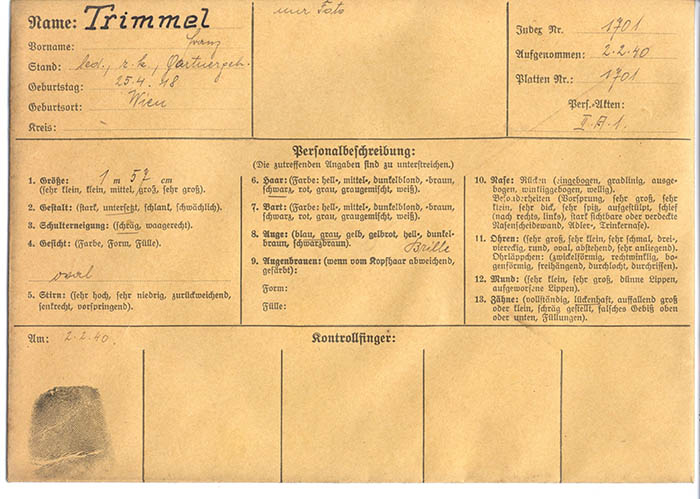 Name: Trimmel
Vorname: Franz
Stand: led., r. k., Gärtnergeh.
Geburtstag: 25.4.18
Geburtsort: Wien
Kreis:
nur Foto
Index Nr. 1701
Aufgenommen: 2.2.40
Platten Nr.: 1701
Pers.-Akten:
II. A. 1.
Personalbeschreibung:
(Die zutreffenden Angaben sind zu unterstreichen.)
1. Größe: 1 m 57 cm
(sehr klein, klein, mittel, groß, sehr groß).
2. Gestalt: (stark, untersetzt, schlank, schwächlich).
3. Schulterneigung: (schräg, waagerecht).
4. Gesicht: (Farbe, Form, Fülle).
oval
5. Stirn: (sehr hoch, sehr niedrig, zurückweichend,
senkrecht, vorspringend).
6. Haar: (Farbe: hell-, mittel-, dunkelblond, -braun,
schwarz, rot, grau, graugemischt, weiß).
7. Bart: (Farbe: hell-, mittel-, dunkelblond, -braun,
schwarz, rot, grau, graugemischt, weiß).
8. Auge: (blau, grau, gelb, gelbrot, hell-, dunkel-
braun, schwarzbraun). Brille
9. Augenbrauen: (wenn vom Kopfhaar abweichend,
gefärbt):
Form:
Fülle:
10. Nase: Rücken (eingebogen, gradlinig, ausge-
bogen, winkliggebogen, wellig).
Besonderheiten (Vorsprung, sehr groß, sehr
klein, sehr dick, sehr spitz, aufgestülpt, schief
(nach rechts, links), stark sichtbare oder verdeckte
Nasenscheidewand, Adler-, Trinkernase).
11. Ohren: (sehr groß, sehr klein, sehr schmal, drei-
viereckig, rund, oval, abstehend, sehr anliegend).
Ohrläppchen: (zwickelförmig, rechtwinklig, bo-
genförmig, freihängend, durchlocht, durchrissen).
12. Mund: (sehr klein, sehr groß, dünne Lippen,
aufgeworfene Lippen).
13. Zähne: (vollständig, lückenhaft, auffallend groß
oder klein, schräg gestellt, falsches Gebiß oben
oder unten, Füllungen).
Am: 2.2.40.
Kontrollfinger: